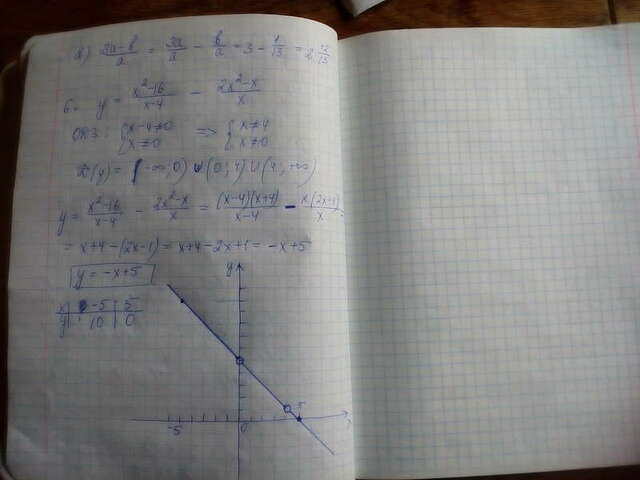 в) (3a-b)/a = 3a/a - b/a = 3 - 1/13 = 2 12/13
6. y = (x²-16)/(x-4) - (2x²-x)/x
ОДЗ: { x-4≠0 => { x≠4
x≠0 x≠0
D(y) = (-∞; 0) ∪ (0; 4) ∪ (4; +∞)
y = (x²-16)/(x-4) - (2x²-x)/x = ((x-4)(x+4))/(x-4) - (x(2x-1))/x =
= x+4-(2x-1) = x+4-2x+1 = -x+5
y = -x+5
x | -5 | 5
y | 10 | 0
y
5
-5 0